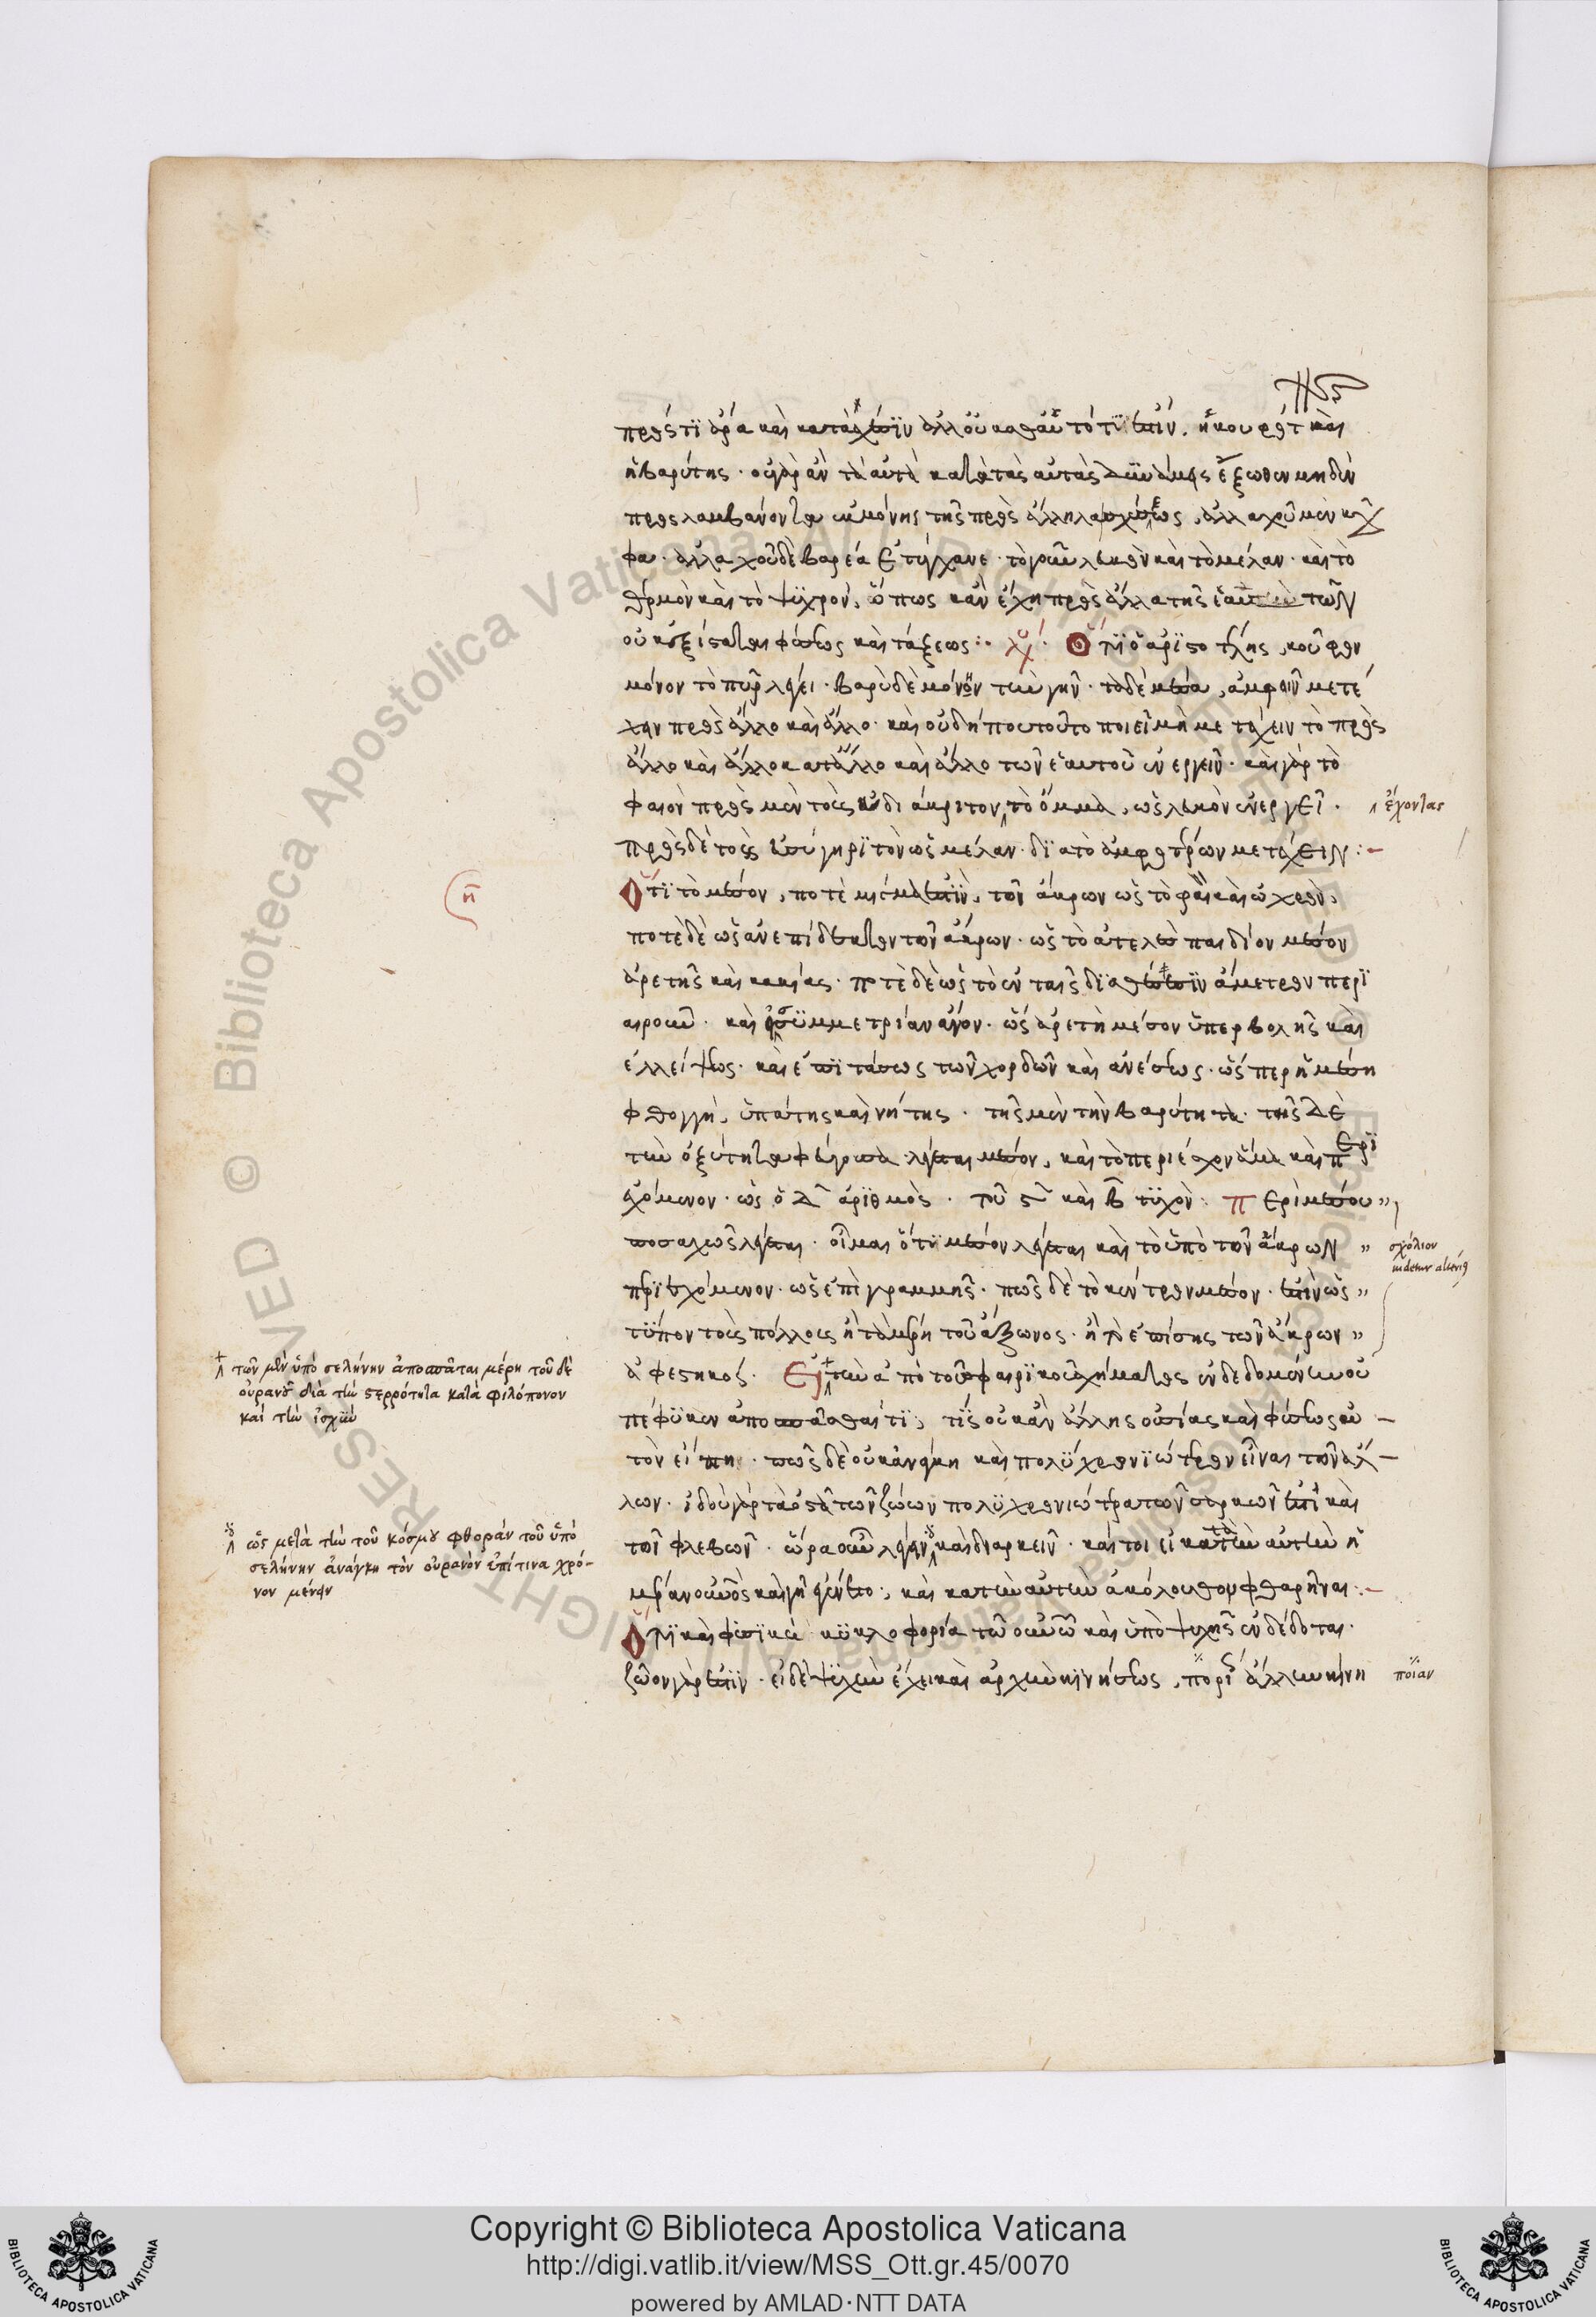 πρός τι ἄρα καὶ κατὰ σχέσιν ἀλλ' οὐ καθ' αὑτό τί ἐστιν. ἡ κουφότης καὶ
ἡ βαρύτης. οὐ γὰρ ἂν τὰ αὐτὰ κατὰ τὰς αὐτὰς δυνάμεις ἔξωθεν μηδὲν
προσλαμβάνοντα ἐκ μόνης τῆς πρὸς ἄλληλα σχέσεως, ἀλλαχοῦ μὲν κοῦ
φα. ἀλλαχοῦ δὲ βαρέα ἐτύγχανε. τὸ γοῦν λευκὸν καὶ τὸ μέλαν. καὶ τὸ
θερμὸν καὶ τὸ ψυχρόν, ὅπως κἂν ἔχῃ πρὸς ἄλλα τῆς ἑαυτῶν
οὐκ ἐξίσταται φύσεως καὶ τάξεως:
Ὅτι ὁ ἀριστοτέλης, κοῦφον
μόνον τὸ πῦρ λέγει. βαρὺ δὲ μόνον τὴν γῆν. τὰ δὲ μέσα, ἀμφοῖν μετέ
χειν πρὸς ἄλλο καὶ ἄλλο. καὶ οὐ δήπου τοῦτο ποιεῖ μὴ μετέχειν τὸ πρὸς
ἄλλο καὶ ἄλλο κατ' ἄλλο καὶ ἄλλο τῶν ἑαυτοῦ ἐνεργεῖν. καὶ γὰρ τὸ
φαιὸν πρὸς μὲν τοὺς εὐδιάκριτον τὸ ὄμμα, ὡς λευκὸν ἐνεργεῖ.
ἔχοντας
πρὸς δὲ τοὺς μέλαν. διὰ τὸ ἀμφοτέρων μετέχειν:
Ὅτι τὸ μέσον, ποτὲ μὲν μῖγμά ἐστιν, τῶν ἄκρων ὡς τὸ φαιὸν καὶ ὠχρόν,
ποτὲ δὲ ὡς ἀνεπίδεκτον τῶν ἄκρων. ὡς τὸ ἀτελὲς παιδίον μέσον
ἀρετῆς καὶ κακίας. ποτὲ δὲ ὡς τὸ ἐν ταῖς διαθέσεσιν ἄμετρον περι
αιροῦν. καὶ εἰς συμμετρίαν ἄγον. ὡς ἀρετὴ μέσον ὑπερβολῆς καὶ
ἐλλείψεως. καὶ ἐπιτάσεως τῶν χορδῶν καὶ ἀνέσεως. ὥσπερ ἡ μέση
φθογγή, ὑπάτης καὶ νήτης. τῆς μὲν τὴν βαρύτητα. τῆς δὲ
τὴν ὀξύτητα φεύγουσα. λέγεται μέσον, καὶ τὸ περιέχον ἅμα καὶ περι
εχόμενον. ὡς ὁ δ ἀριθμὸς. τοῦ ς καὶ β τυχόν: Περὶ μέσου
ποσαχῶς λέγεται. οἶμαι ὅτι μέσον λέγεται καὶ τὸ ὑπὸ τῶν ἄκρων
σχόλιον
videtur alterius
περιεχόμενον. ὡς ἐπὶ γραμμῆς. πῶς δὲ τὸ κέντρον μέσον. ἐστὶν ὡς
τύπον τοῖς πόλλοις ἢ τὰ μέρη τοῦ ἄξωνος. ἢ τὸ ἐπίσης τῶν ἄκρων
ἀφεστηκός. Εἰ τὴν ἀπὸ τοῦ σφαιρικοῦ σχήματος ἐνδεδομένην οὐ
τῶν μὲν ὑπὸ σελήνην ἀποσπᾶται μέρη τοῦ δὲ
οὐρανοῦ διὰ τὴν στερρότητα κατὰ φιλόπονον
καὶ τὴν ἰσχὺν
πέφυκεν ἀποσπᾶσθαί τι, τίς οὐκ ἂν ἄλλης οὐσίας καὶ φύσεως αὐ
τὸν εἴπῃ. πῶς δὲ οὐκ ἀνάγκη καὶ πολυχρονιώτερον εἶναι τῶν ἄλ
λων. ἰδοὺ γὰρ τὰ ὀστᾶ τῶν ζώων πολυχρονιώτερα τῶν σαρκῶν ἐστὶ καὶ
τῶν φλεβῶν. ὥρα οὖν λέγειν καὶ διαρκεῖν. καίτοι εἰ κατὰ τὴν αὐτὴν ἡ
ὡς μετὰ τὴν τοῦ κόσμου φθορὰν τοῦ ὑπὸ
σελήνην ἀνάγκη τὸν οὐρανὸν ἐπί τινα χρό-
νον μένειν
μέραν οὐρανὸς καὶ γῆ ἐγένετο, καὶ κατὰ τὴν αὐτὴν ἀκόλουθον φθαρῆναι:
Ὅτι καὶ φυσικὴ κυκλοφορία τῷ οὐρανῷ καὶ ὑπὸ ψυχῆς ἐνδέδοται.
ζῷον γάρ ἐστιν. εἰ δὲ ψυχὴν ἔχει καὶ ἀρχὴν κινήσεως, ἄλλην κίνη
ποίαν
Copyright © Biblioteca Apostolica Vaticana
http://digi.vatlib.it/view/MSS_Ott.gr.45/0070
powered by AMLAD·NTT DATA
BIBLIOTECA APOSTOLICA VATICANA
BIBLIOTECA APOSTOLICA VATICANA